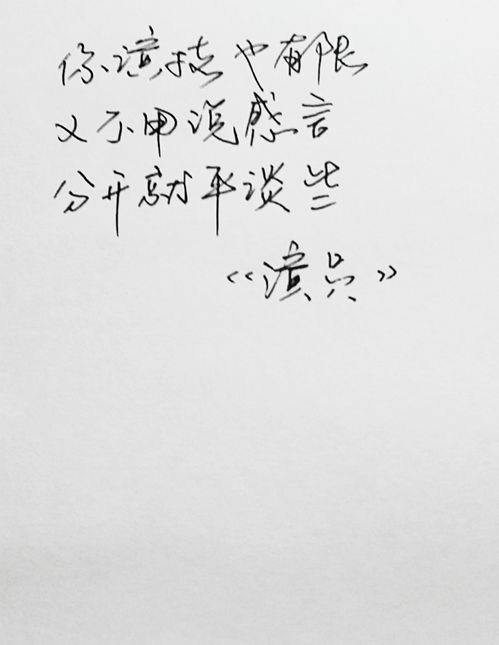 你演技也有限
又不用说感言
分开就平淡些
《演员》